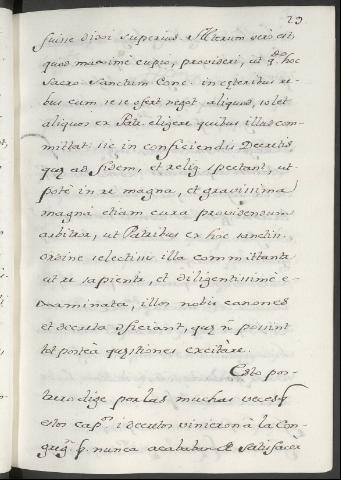 29
fuisse dixi superius. Alterum verò est,
quod maximè cupio, provideri, ut q.do hoc
Sacro Sanctum Conc. in cęteribus re-
bus cum se se ofert negot. aliquod, solet
aliquos ex Patr. eligere quibus illas com-
mittat sic in conficiendis Decretis,
quę ad fidem, et relig. spectant, ut
potè in re magna, et gravissima
magna etiam cura providendum
arbitror, ut Patribus ex hoc sanctiss.
ordine selectis illa committantur
ut re sapienter, et diligentissimè e-
xaminata, illos nobis canones
et decreta officiant, quę ñ possint
tot posteà quęstiones excitàre.
Esto pos-
trero dige por las muchas veces q̃
estos cap.os i decretos vinieron à la Con-
greg.n y nunca acababan de satisfacer